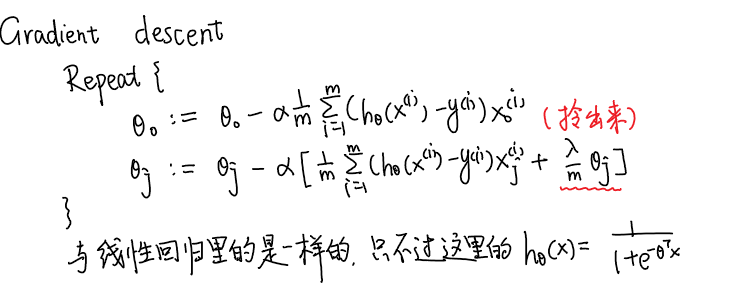 Gradient descent
Repeat {
θ₀ := θ₀ - α 1/m Σᵢ₌₁ᵐ (h_θ(x⁽ⁱ⁾) - y⁽ⁱ⁾) x₀⁽ⁱ⁾ (拎出来)
θⱼ := θⱼ - α [ 1/m Σᵢ₌₁ᵐ (h_θ(x⁽ⁱ⁾) - y⁽ⁱ⁾) xⱼ⁽ⁱ⁾ + λ/m θⱼ ]
}
与线性回归里的是一样的, 只不过这里的 h_θ(x) = 1/(1+e^(-θᵀx))